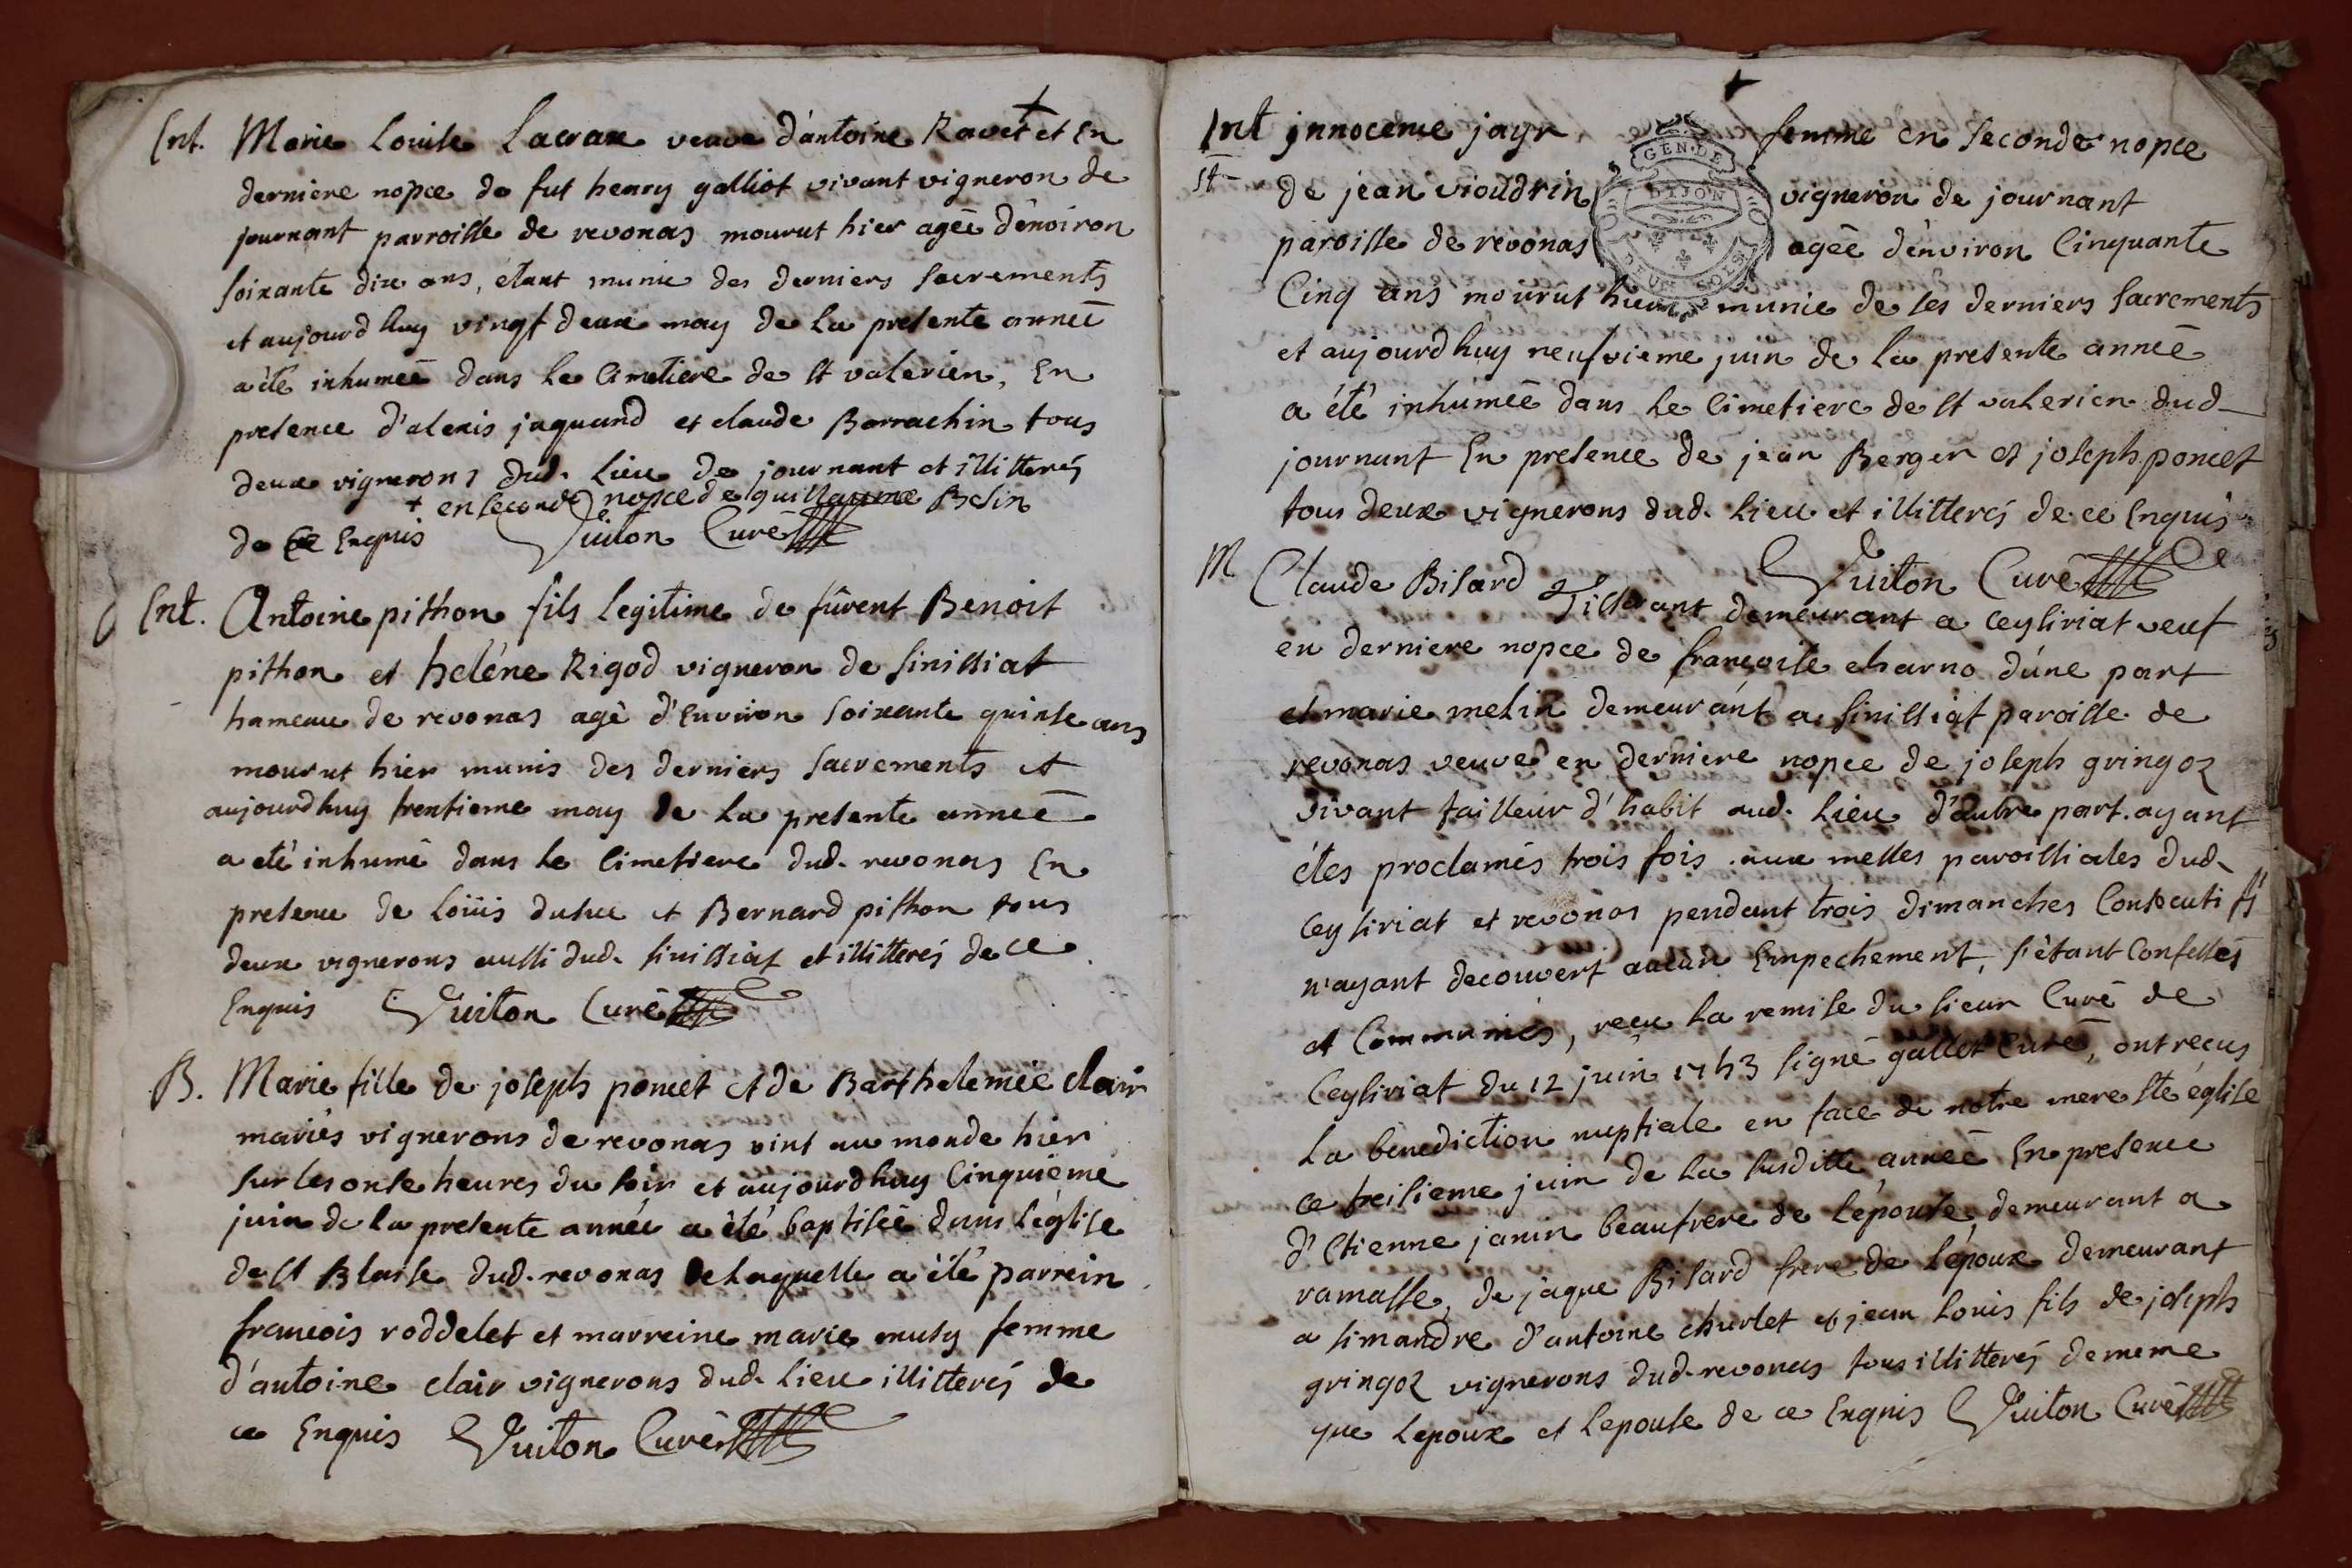 Ent. Marie Louise Lacrax veuve d'antoine Ravet + et En
derniere nopce de fut henry galliot vivant vigneron de
journant parroisse de revonas mourut hier agée d'environ
soixante dix ans, étant munie des derniers sacrements
et aujourdhuy vingt deux may de la presente année
a été inhumée dans le Cimetiere de st valerien, En
presence d'alexis jaquand et claude Borrachin tous
deux vignerons dud. lieu de journant et illitterés
+ en seconde nopce de guillaume Belin
de ce Enquis Vuiton Curé
Ent. Antoine pithon fils legitime de fûrent Benoit
pithon et heléne Rigod vigneron de sinissiat
hameau de revonas agé d'Environ soixante quinse ans
mourut hier munis des derniers sacrements et
aujourdhuy trentieme may de la presente année
a eté inhumé dans le Cimetiere dud. revonas En
presence de Loüis dusuc et Bernard pithon tous
deux vignerons aussi dud. sinissiat et illitterés de ce
Enquis Vuiton Curé
B. Marie fille de joseph poncet et de Barthelemie clair
mariés vignerons de revonas vint au monde hier
sur les onse heures du soir et aujourdhuy Cinquieme
juin de la presente année a été baptisée dans l'église
de st Blaise dud. revonas de laquelle a été parrein
francois roddelet et marreine marie musy femme
d'antoine clair vignerons dud. lieu illitterés de
ce Enquis Vuiton Curé
Int innocence jayr femme en seconde nopce
de jean vioudrin vigneron de journant
paroisse de revonas agée d'environ Cinquante
GEN. DE
DIJON
DEUX SOLS
Cinq ans mourut hier munie de ses derniers sacrements
et aujourdhuy neufvieme juin de la presente année
a été inhumée dans le Cimetiere de st valerien dud
journant En presence de jean Berger et joseph poncet
tous deux vignerons dud. lieu et illitterés de ce Enquis
Vuiton Curé
M Claude Bisard Tisserant demeurant a Ceysiriat veuf
en derniere nopce de françoise charno d'une part
et marie melin demeurant a sinissiat paroisse de
revonas veuve en derniere nopce de joseph gringoz
vivant tailleur d'habit aud. lieu d'autre part. ayant
étes proclamés trois fois aux messes paroissiales dud.
Ceysiriat et revonas pendant trois dimanches Consecutifs
n'ayant decouvert aucun Empechement, s'étant Confessés
et Communiés, reçu la remise du sieur Curé de
Ceysiriat du 12 juin 1743 signé gallet Curé, ont recus
la benediction nuptiale en face de notre mere ste église
ce treisieme juin de la susditte année En presence
d'Etienne janin beaufrere de l'épouse, demeurant a
ramasse, de jaque Bisard frere de l'époux demeurant
a simandre d'antoine churlet et jean Louis fils de joseph
gringoz vignerons dud. revonas tous illitterés de meme
que l'epoux et l'epouse de ce Enquis Vuiton Curé